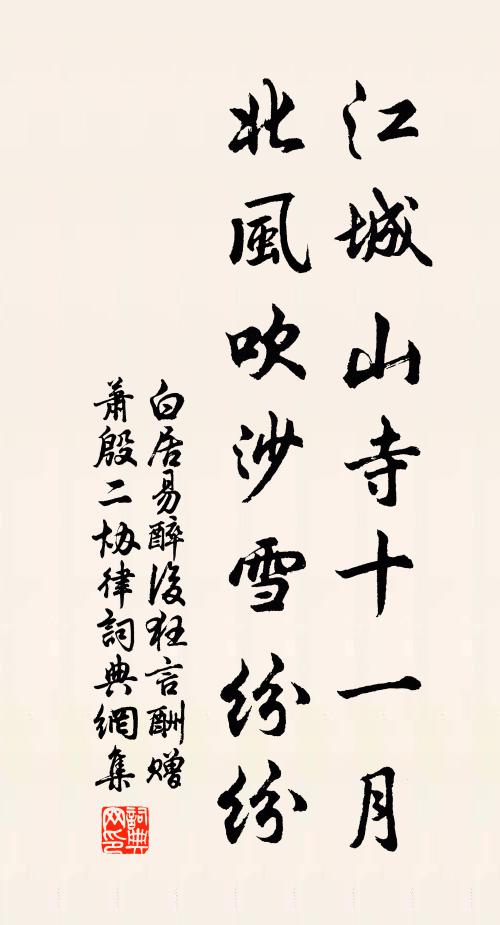 江城山寺十一月
北風吹沙雪紛紛
白居易醉後狂言酬贈
蕭殷二協律詞典網集
詞典
网印